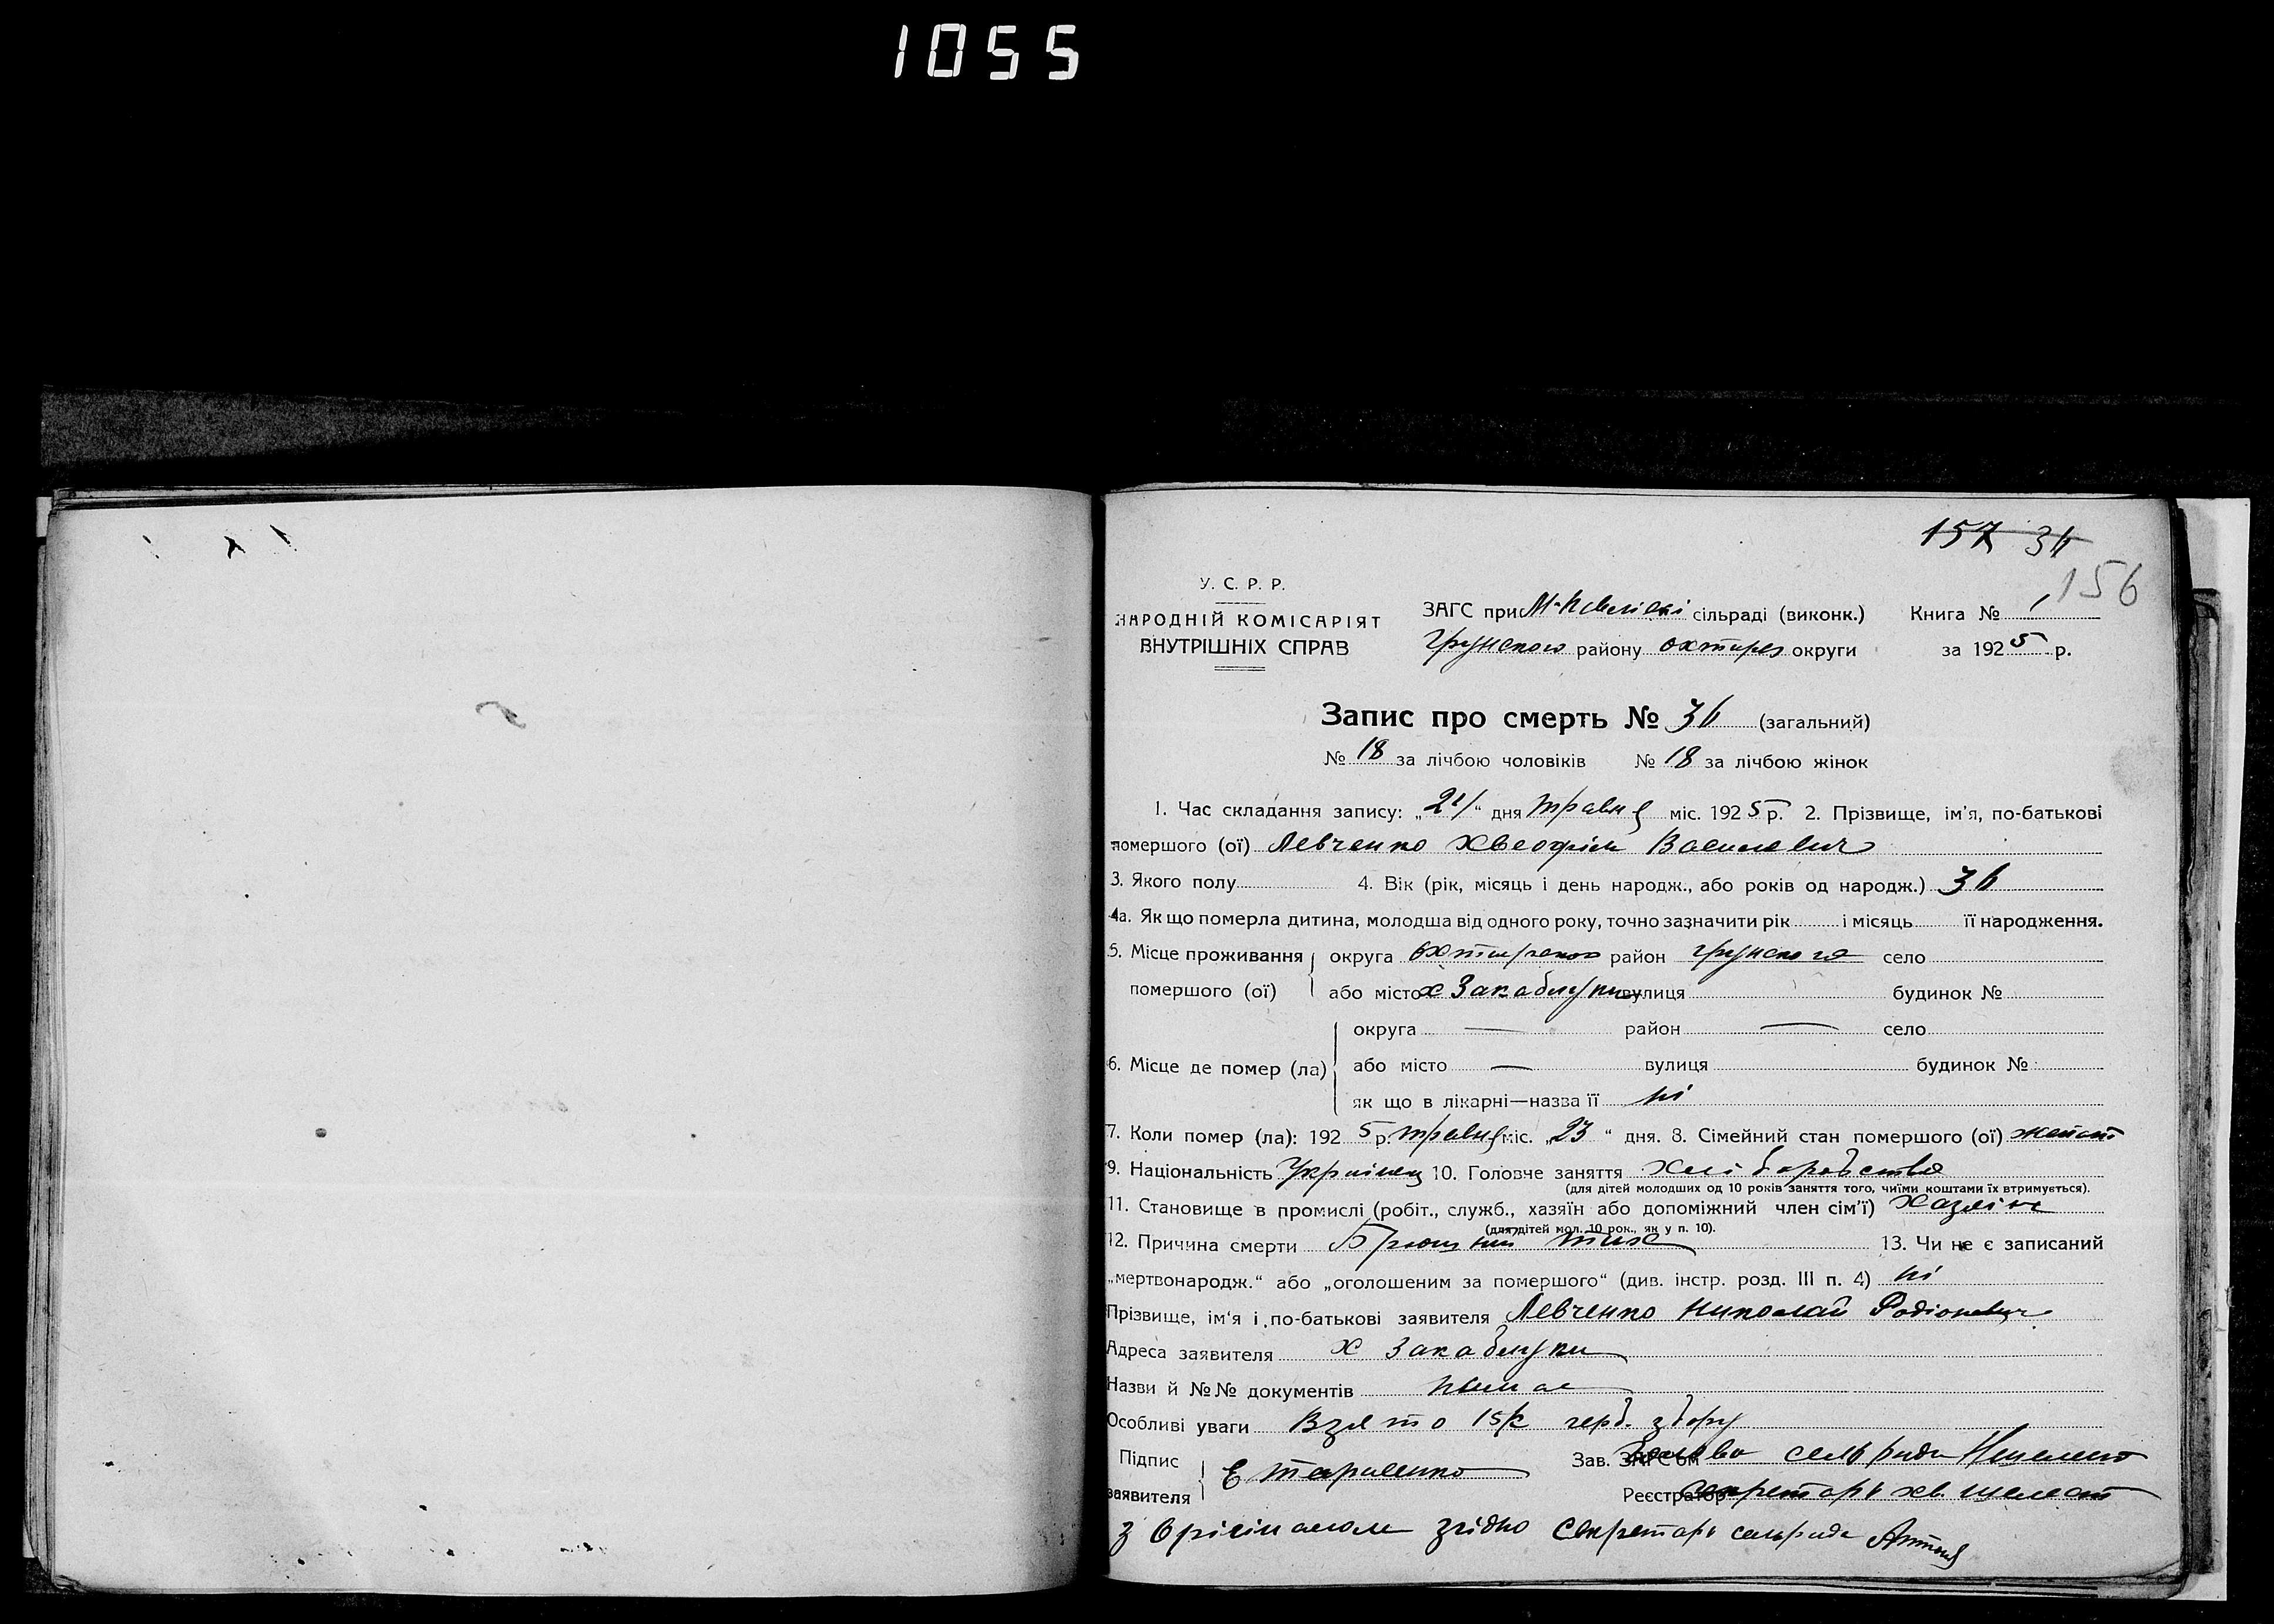 1055
157 36
156
У. С. Р. Р.
НАРОДНІЙ КОМІСАРІЯТ
ВНУТРІШНІХ СПРАВ
ЗАГС при сільраді (виконк.) Книга № 1
грунского району охтирс округи за 1925 р.
Запис про смерть № 36 (загальний)
№ 18 за лічбою чоловіків № 18 за лічбою жінок
1. Час складання запису: „24“ дня травня міс. 1925 р. 2. Прізвище, ім'я, по-батькові
помершого (ої) Левченко Хвеофіл Василевич
3. Якого полу 4. Вік (рік, місяць і день народж., або років од народж.) 36
4а. Як що померла дитина, молодша від одного року, точно зазначити рік і місяць її народження.
5. Місце проживання округа район грунского село
помершого (ої) або місто х Закаблуки вулиця будинок №
округа — район — село
6. Місце де помер (ла) або місто — вулиця будинок №
як що в лікарні—назва її ні
7. Коли помер (ла): 1925 р. травня міс. „23“ дня. 8. Сімейний стан помершого (ої)
9. Національність Українец 10. Головче заняття хліборобство
(для дітей молодших од 10 років заняття того, чиїми коштами їх втримується).
11. Становище в промислі (робіт., служб., хазяїн або допоміжний член сім'ї) Хазяїн
(для дітей мол. 10 рок., як у п. 10).
12. Причина смерти Брюшний тиф 13. Чи не є записаний
„мертвонародж.“ або „оголошеним за помершого“ (див. інстр. розд. III п. 4) ні
Прізвище, ім'я і по-батькові заявителя Левченко Николай Родіонович
Адреса заявителя х Закаблуки
Назви й №№ документів
Особливі уваги Взято 15к герб. збору
Підпис Зав. ЗАГС'ом сельради
заявителя Реєстратор секретарь хв. шелест
з орігіналом згідно Секретарь сельради